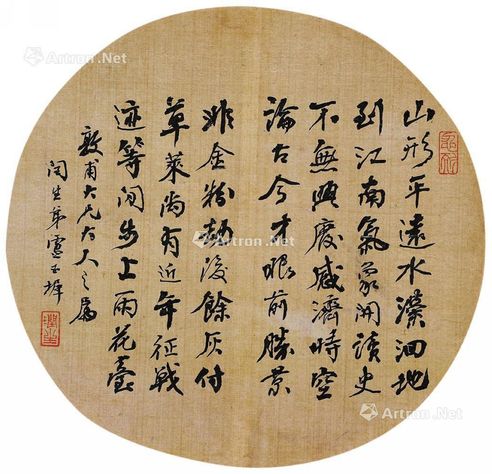 山形平遠水瀠洄地
到江南氣象開讀史
不無興廢感濟時空
論古今才眼前勝景
非金粉劫後餘灰付
草萊尚有近年征戰
迹等閒步上雨花臺
敦甫大兄大人之屬
閏生弟玉墀
Artron.Net
Artron.Net
Artron.Net